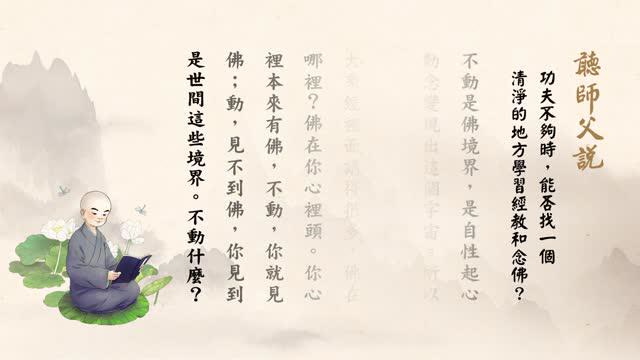 聽師父說
功夫不夠時，能否找一個
清淨的地方學習經教和念佛？
不動是佛境界，是自性起心
動念變現出這個宇宙。所以
佛在
哪裡？佛在你心裡頭。你心
裡本來有佛，不動，你就見
佛；動，見不到佛，你見到
是世間這些境界。不動什麼？